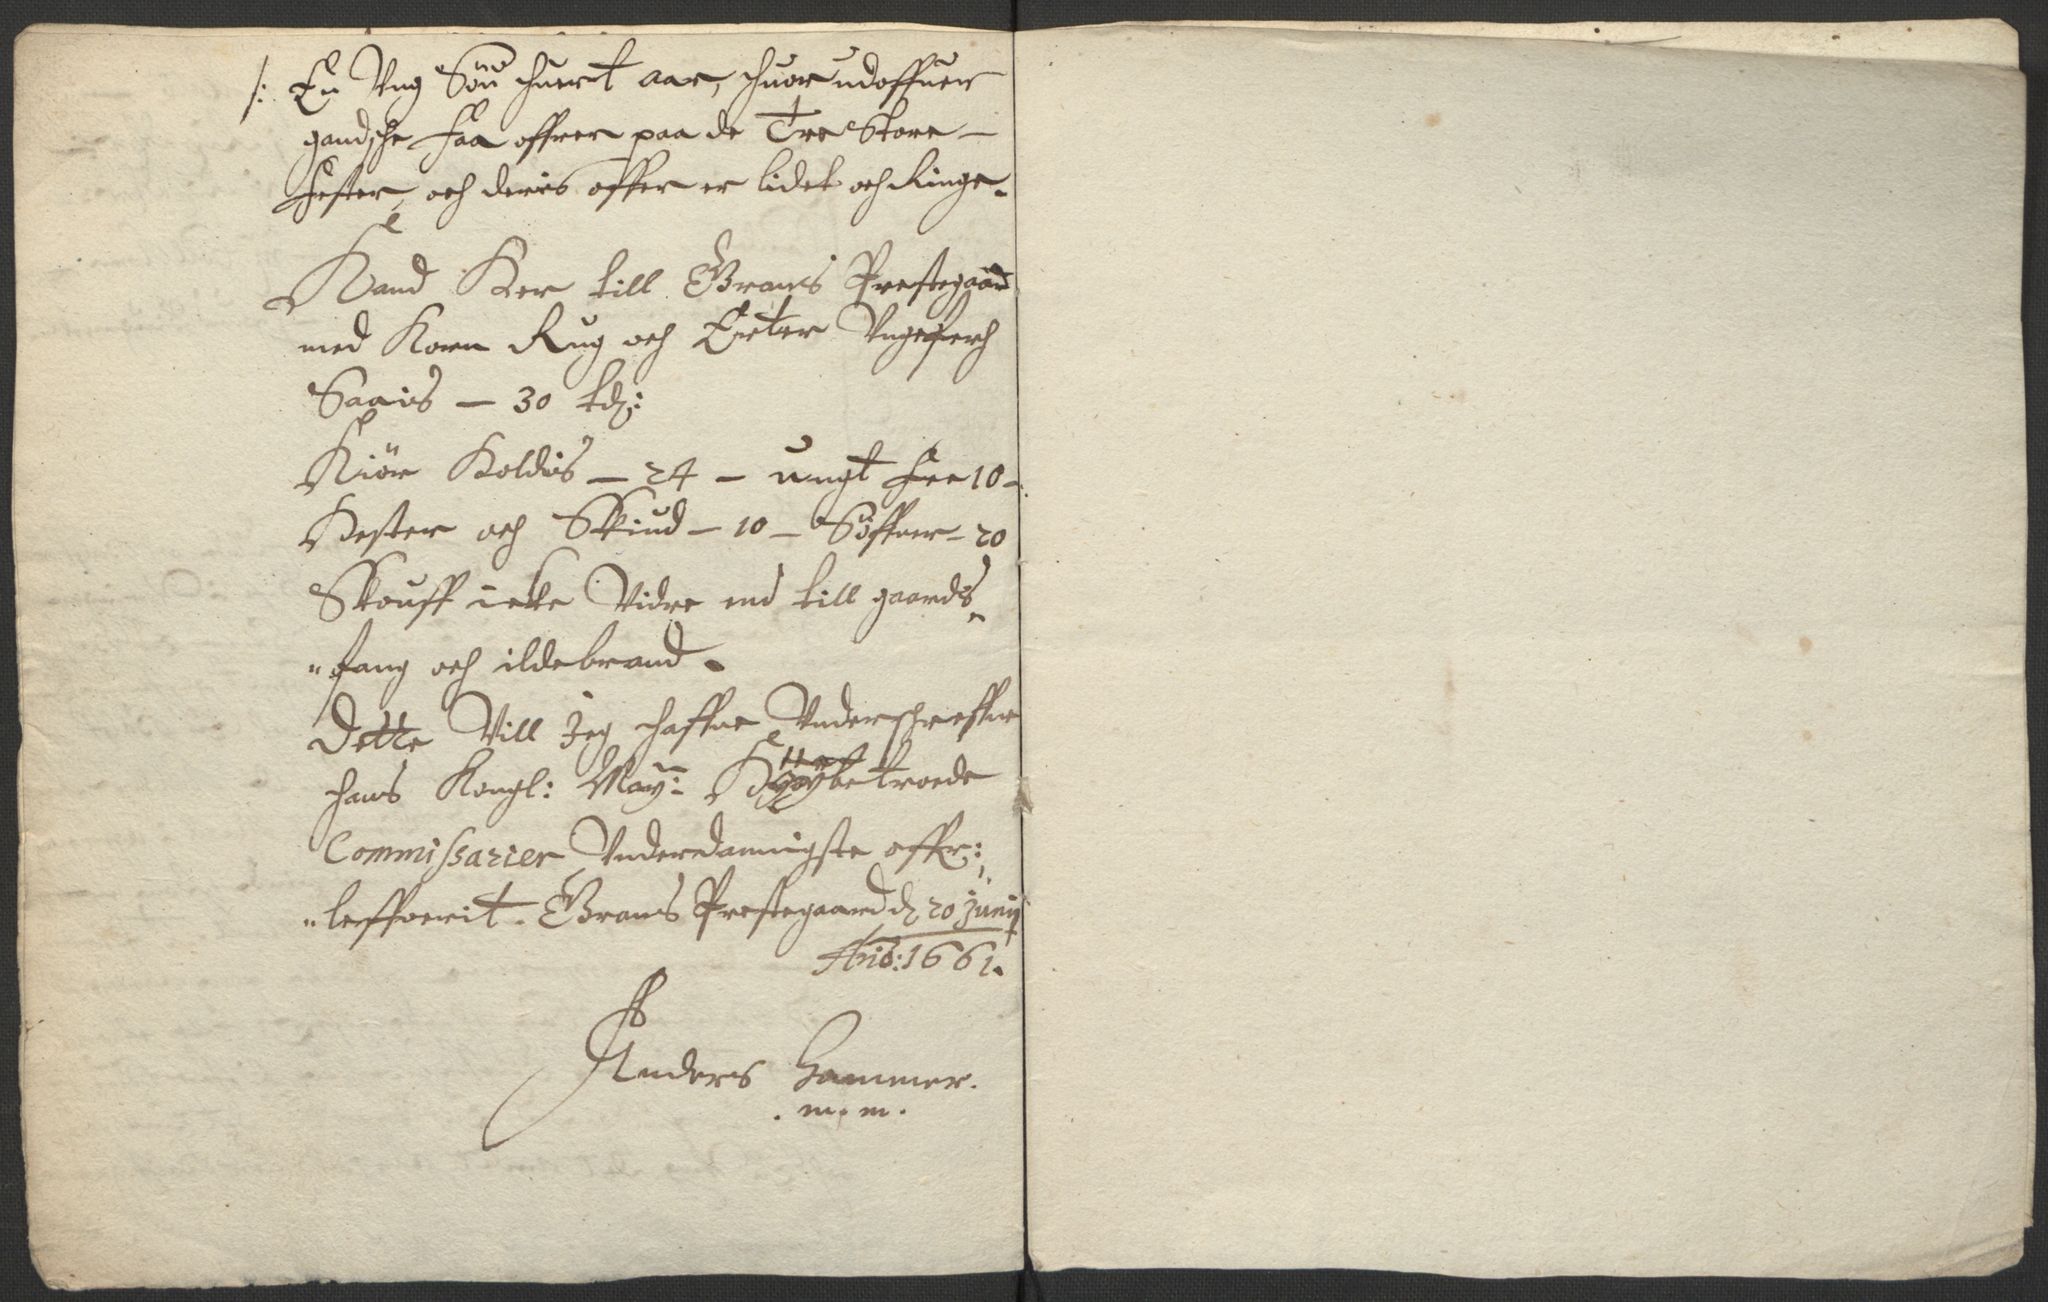 /: En Ung Søn huert aar, huor udoffuer
gandsche faa offrer paa de Tre Store
Fester, och deris offer er lidet och Ringe.
Kand Her till Grans Prestegaard
med Korn Rug och Erter Ungeferh
Saais — 30 tdr:
Kiör Holdis — 24 — ungt fee 10 —
Hester och Skiud — 10 — Söffuer — 20
Skouff icke Vidre end till gaards
"fang och ildebrand.
Dette Vill Jeg haffue Underschreffne
hans Kongl: May: betroede
Commissarier Underdannigste offr:
"leffuerit. Grans Prestegaard d 20 Junij
Ano: 1661.
Anders Hammer.
. m. m.